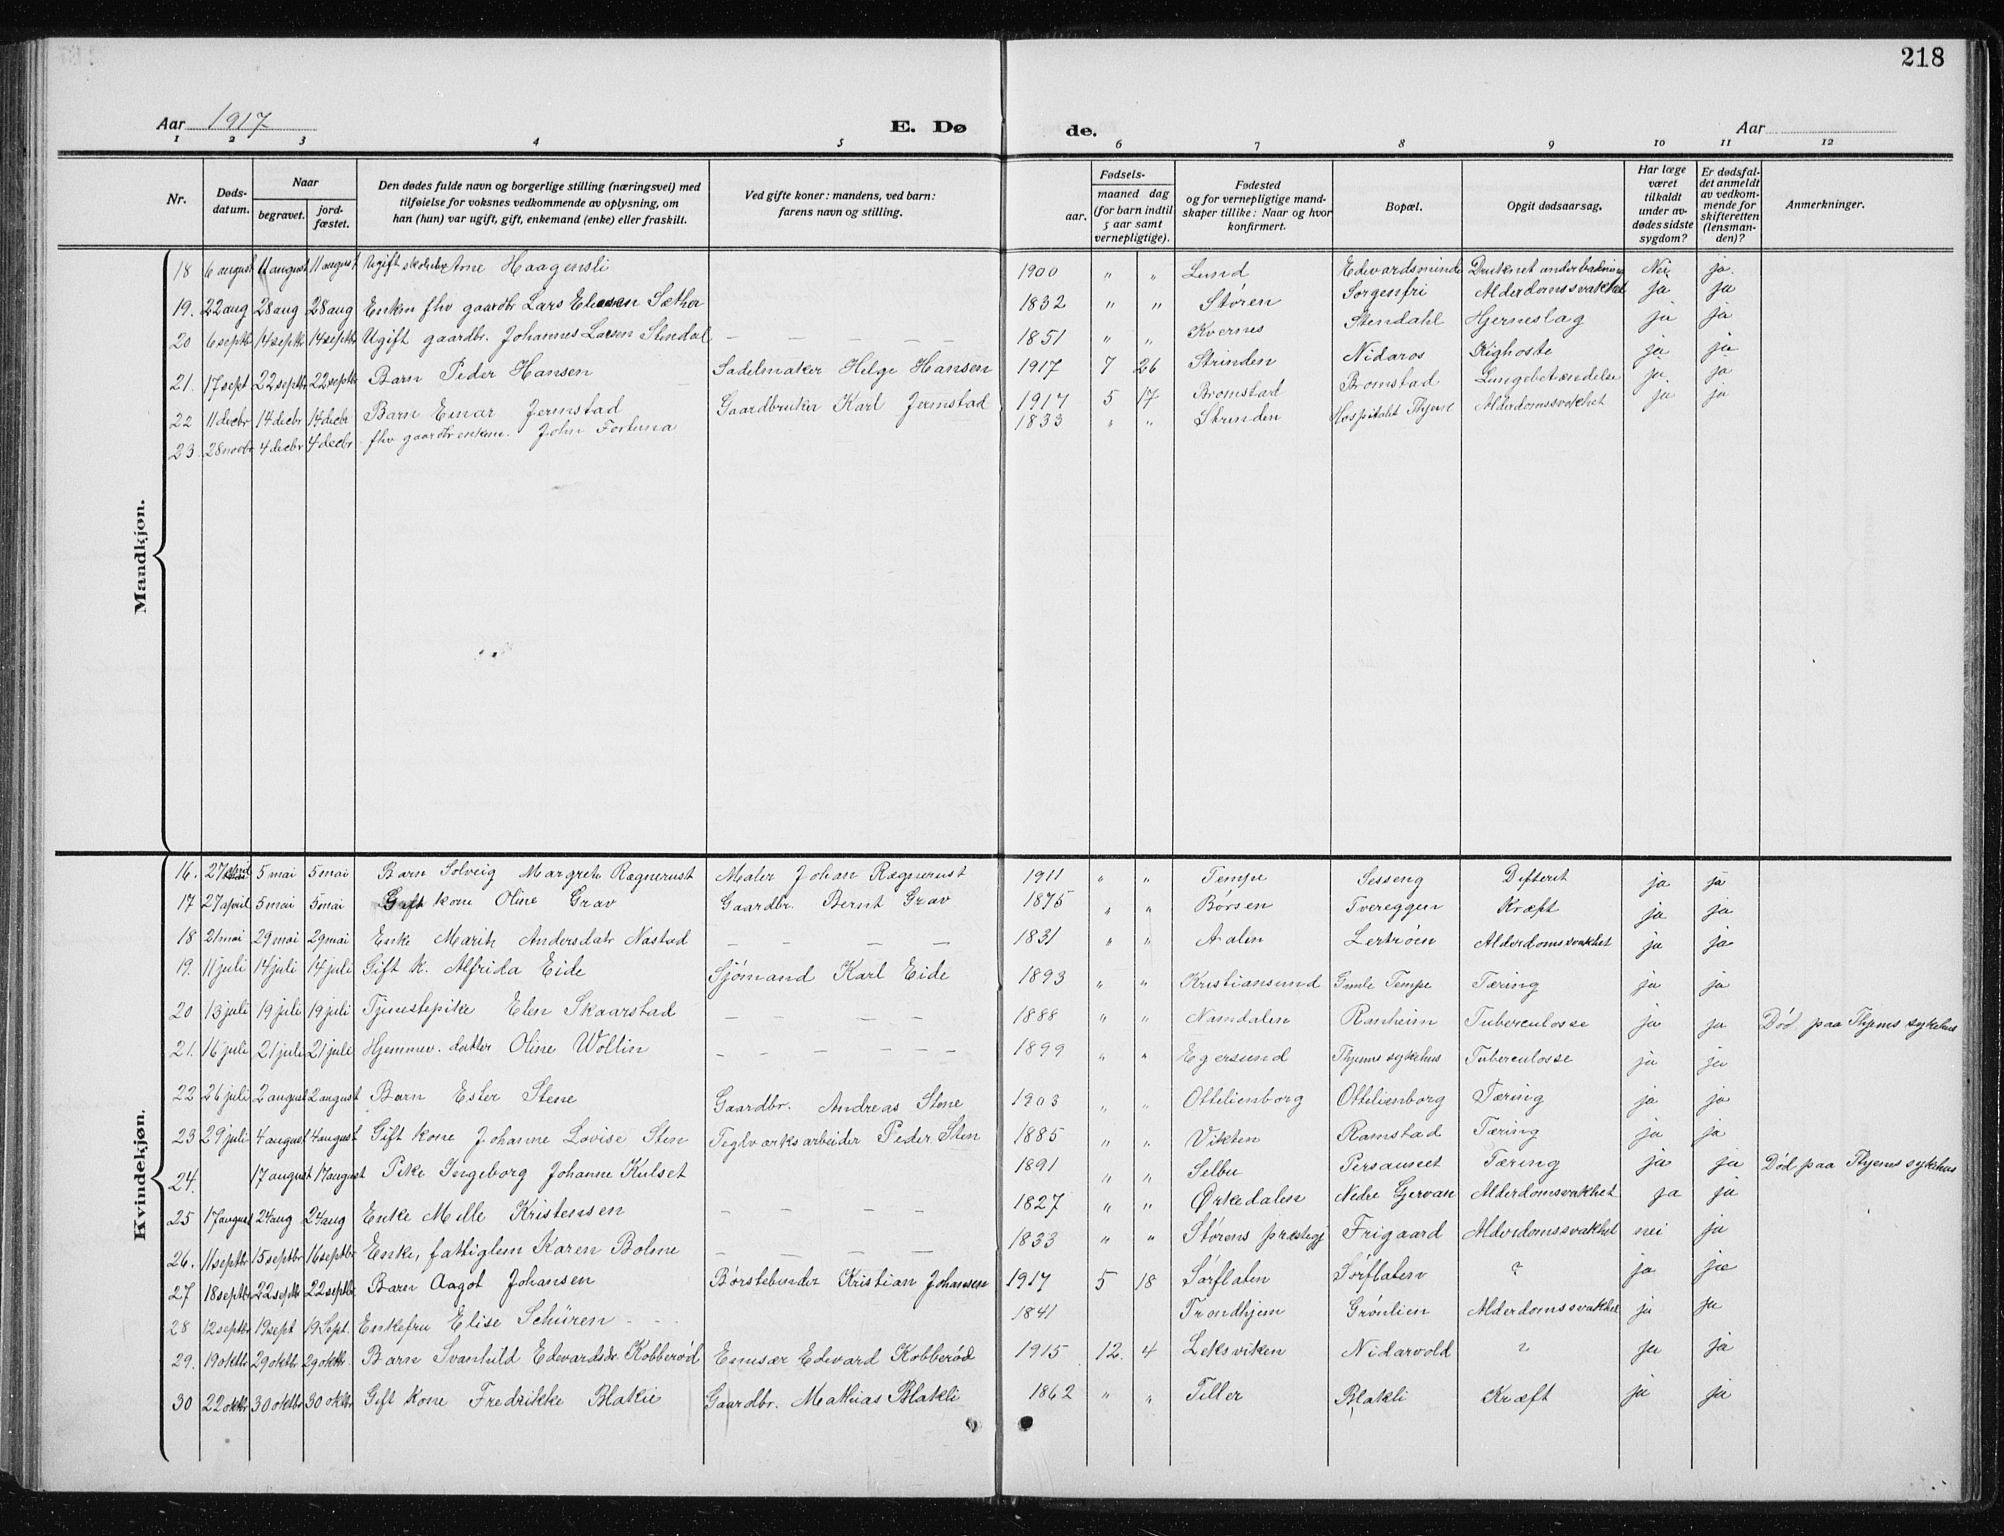 218
Aar 1917 E. Dø de. Aar
1 2 3 4 5 6 7 8 9 10 11 12
Nr. Døds-datum. Naar begravet. jord-fæstet. Den dødes fulde navn og borgerlige stilling (næringsvei) med tilføielse for voksnes vedkommende av oplysning, om han (hun) var ugift, gift, enkemand (enke) eller fraskilt. Ved gifte koner: mandens, ved barn: farens navn og stilling. Fødsels- aar. maaned dag (for barn indtil 5 aar samt vernepligtige). Fødested og for vernepligtige mand-skaper tillike: Naar og hvor konfirmert. Bopæl. Opgit dødsaarsag. Har læge været tilkaldt under av-dødes sidste sygdom? Er dødsfal-det anmeldt av vedkom-mende for skifteretten (lensman-den)? Anmerkninger.
Mandkjøn.
18 6 august 11 august 11 august Ugift Arne Haagensli 1900 " " Lund Edvardsminde Druknet under badning Nei ja.
19. 22 aug 28 aug 28 aug Enkm fhv gaardbr Lars Ellesen Sæther 1832 " " Støren Sorgenfri Alderdomssvakhet ja ja
20 6 septbr 14 septbr 14 septbr Ugift gaardbr. Johannes Larsen Stendal — — — — — 1851 " " Kvernes Stendahl Hjerneslag ja ja
21. 17 sept 22 septbr 22 septbr Barn Peder Hansen Sadelmaker Helge Hansen 1917 7 26 Strinden Nidaros Kighoste ja ja
22 11 decbr 14 decbr 14 decbr Barn Einar Jermstad Gaardbruker Karl Jermstad 1917 5 17 Bromstad Bromstad Lungebetændelse ja. ja
23. 28 novbr 4 decbr 4 decbr fhv gaardbr enkm. John Fortuna 1833 " " Strinden Hospitalet Thjem Alderdomssvakhet ja ja
Kvindekjøn.
16. 27 april 5 mai 5 mai Barn Solveig Margrete Ragnerust Maler Johan Ragnerust 1911 " " Tempe Sesseng Difterit ja ja
17 27 april 5 mai 5 mai Gift kone Oline Grav Gaardbr. Bernt Grav 1875 " " Børsen Tvereggen Kræft ja ja
18 21 mai 29 mai 29 mai Enke Marit Andersdatr Nastad — — — — 1831 " " Aalen Lertrøen Alderdomssvakhet ja ja
19. 11 juli 14 juli 14 juli Gift k. Alfrida Eide Sjømand Karl Eide 1893 " " Kristiansund Gamle Tempe Tæring ja ja
20 13 juli 19 juli 19 juli Tjenestepike Elen Skaarstad — — — — — 1888 " " Namdalen Ranheim Tuberculosse ja ja Død paa Thjems sykehus
21. 16 juli 21 juli 21 juli Hjemmev. datter Oline Wollin — — — — — — 1899 " " Egersund Thjems sykehus Tuberculosse ja ja
22 26 juli 2 august 2 august Barn Ester Stene Gaardbr. Andreas Stene 1903 " " Ottelienborg Ottelienborg Tæring ja ja
23 29 juli 4 august 4 august Gift kone Johanne Lovise Sten Teglværksarbeider Peder Sten 1885 " " Vikten Ramstad Tæring ja ja
24. 17 august 17 august Pike Ingeborg Johanne Kulset 1891 " " Selbu Persaunet Tæring ja ja Død paa Thjems sykehus
25 17 august 24 aug 24 aug Enke Mille Kristensen — — — — 1827 " " Ørkedalen Nedre Gjervan Alderdomsvakhet ja ja
26. 11 septbr 15 septbr 16 septbr Enke, fattiglem Karen Bolme — — — — 1833 " " Størens præstegj Frigaard Alderdomssvakhet nei ja
27 18 septbr 22 septbr 22 septbr Barn Aagot Johansen Børstebinder Kristian Johansen 1917 5 18 Sørflaten Sørflaten ? ja ja
28 12 septbr 19 sept 19 Sept. Enkefru Elise Schüren - - - 1841 Trondhjem Grønlien Alderdomssvakhet ja ja
29. 19 oktbr 29 oktbr 29 oktbr. Barn Svanhild Edvardsdr. Kobberød Emisær Edvard Kobberød 1915 12. 4 Leksviken Nidarvold ? ja ja
30 22 oktbr 30 oktbr 30 oktbr Gift kone Fredrikke Blakli Gaardbr. Mathias Blakli 1862 " " Tiller Blakli Kræft ja ja